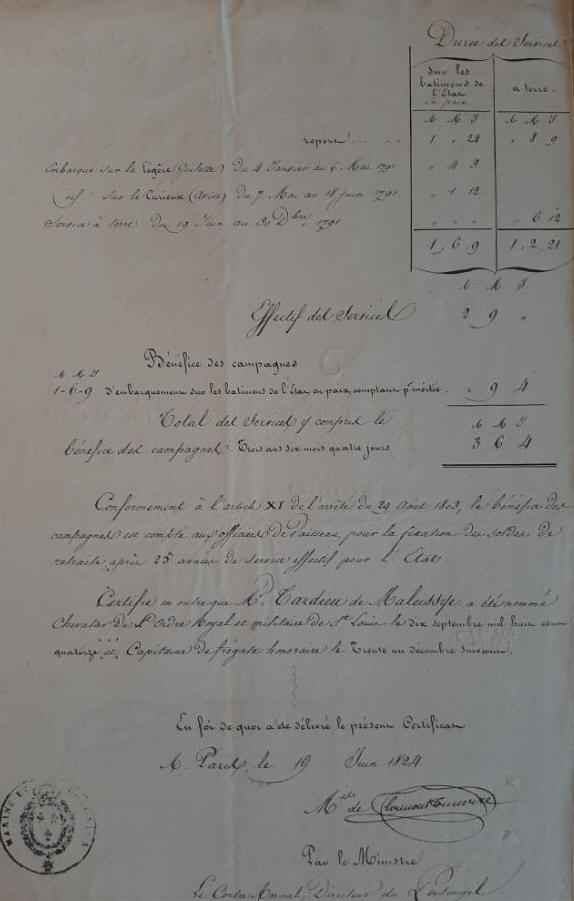 Durée des Services
sur les bâtimens de l'Etat en paix
à terre.
A M J A M J
report . . . . . 1 " 24 " 8 9
Embarqué sur la Légère (Goëlette) du 4 Janvier au 6 Mai 1791 " 4 3
id sur le Curieux (Aviso) du 7 Mai au 18 Juin 1791 " 1 12
Service à terre du 19 Juin au 30 Xbre 1791 " " " " 6 12
1, 6, 9 1, 2, 21
A M J.
Effectif des Services 2 9 "
Bénéfice des campagnes
A M J
1-6-9 d'embarquement sur les bâtimens de l'Etat, en paix, comptant pr moitié . . " 9 4
Total des Services y compris le
A M J.
bénéfice des campagnes. Trois ans six mois quatre jours 3 6 4
Conformément à l'article XI de l'arrêté du 29 Août 1803, le bénéfice des
campagnes est compté aux officiers de Vaisseau, pour la fixation des soldes de
retraite après 25 années de service effectif pour l'Etat.
Certifie en outre que Mr. Tardieu de Maleissye a été nommé
Chevalier de l'Ordre Royal et militaire de St Louis le dix septembre mil huit cent
quatorze et Capitaine de frégate honoraire le Trente un décembre suivant.
En foi de quoi a été délivré le présent Certificat
A Paris, le 19 Juin 1824.
Mis de Clermont Tonnerre
MARINE ET COLONIES
Par le Ministre
Le Contre Amiral, Directeur du Personnel